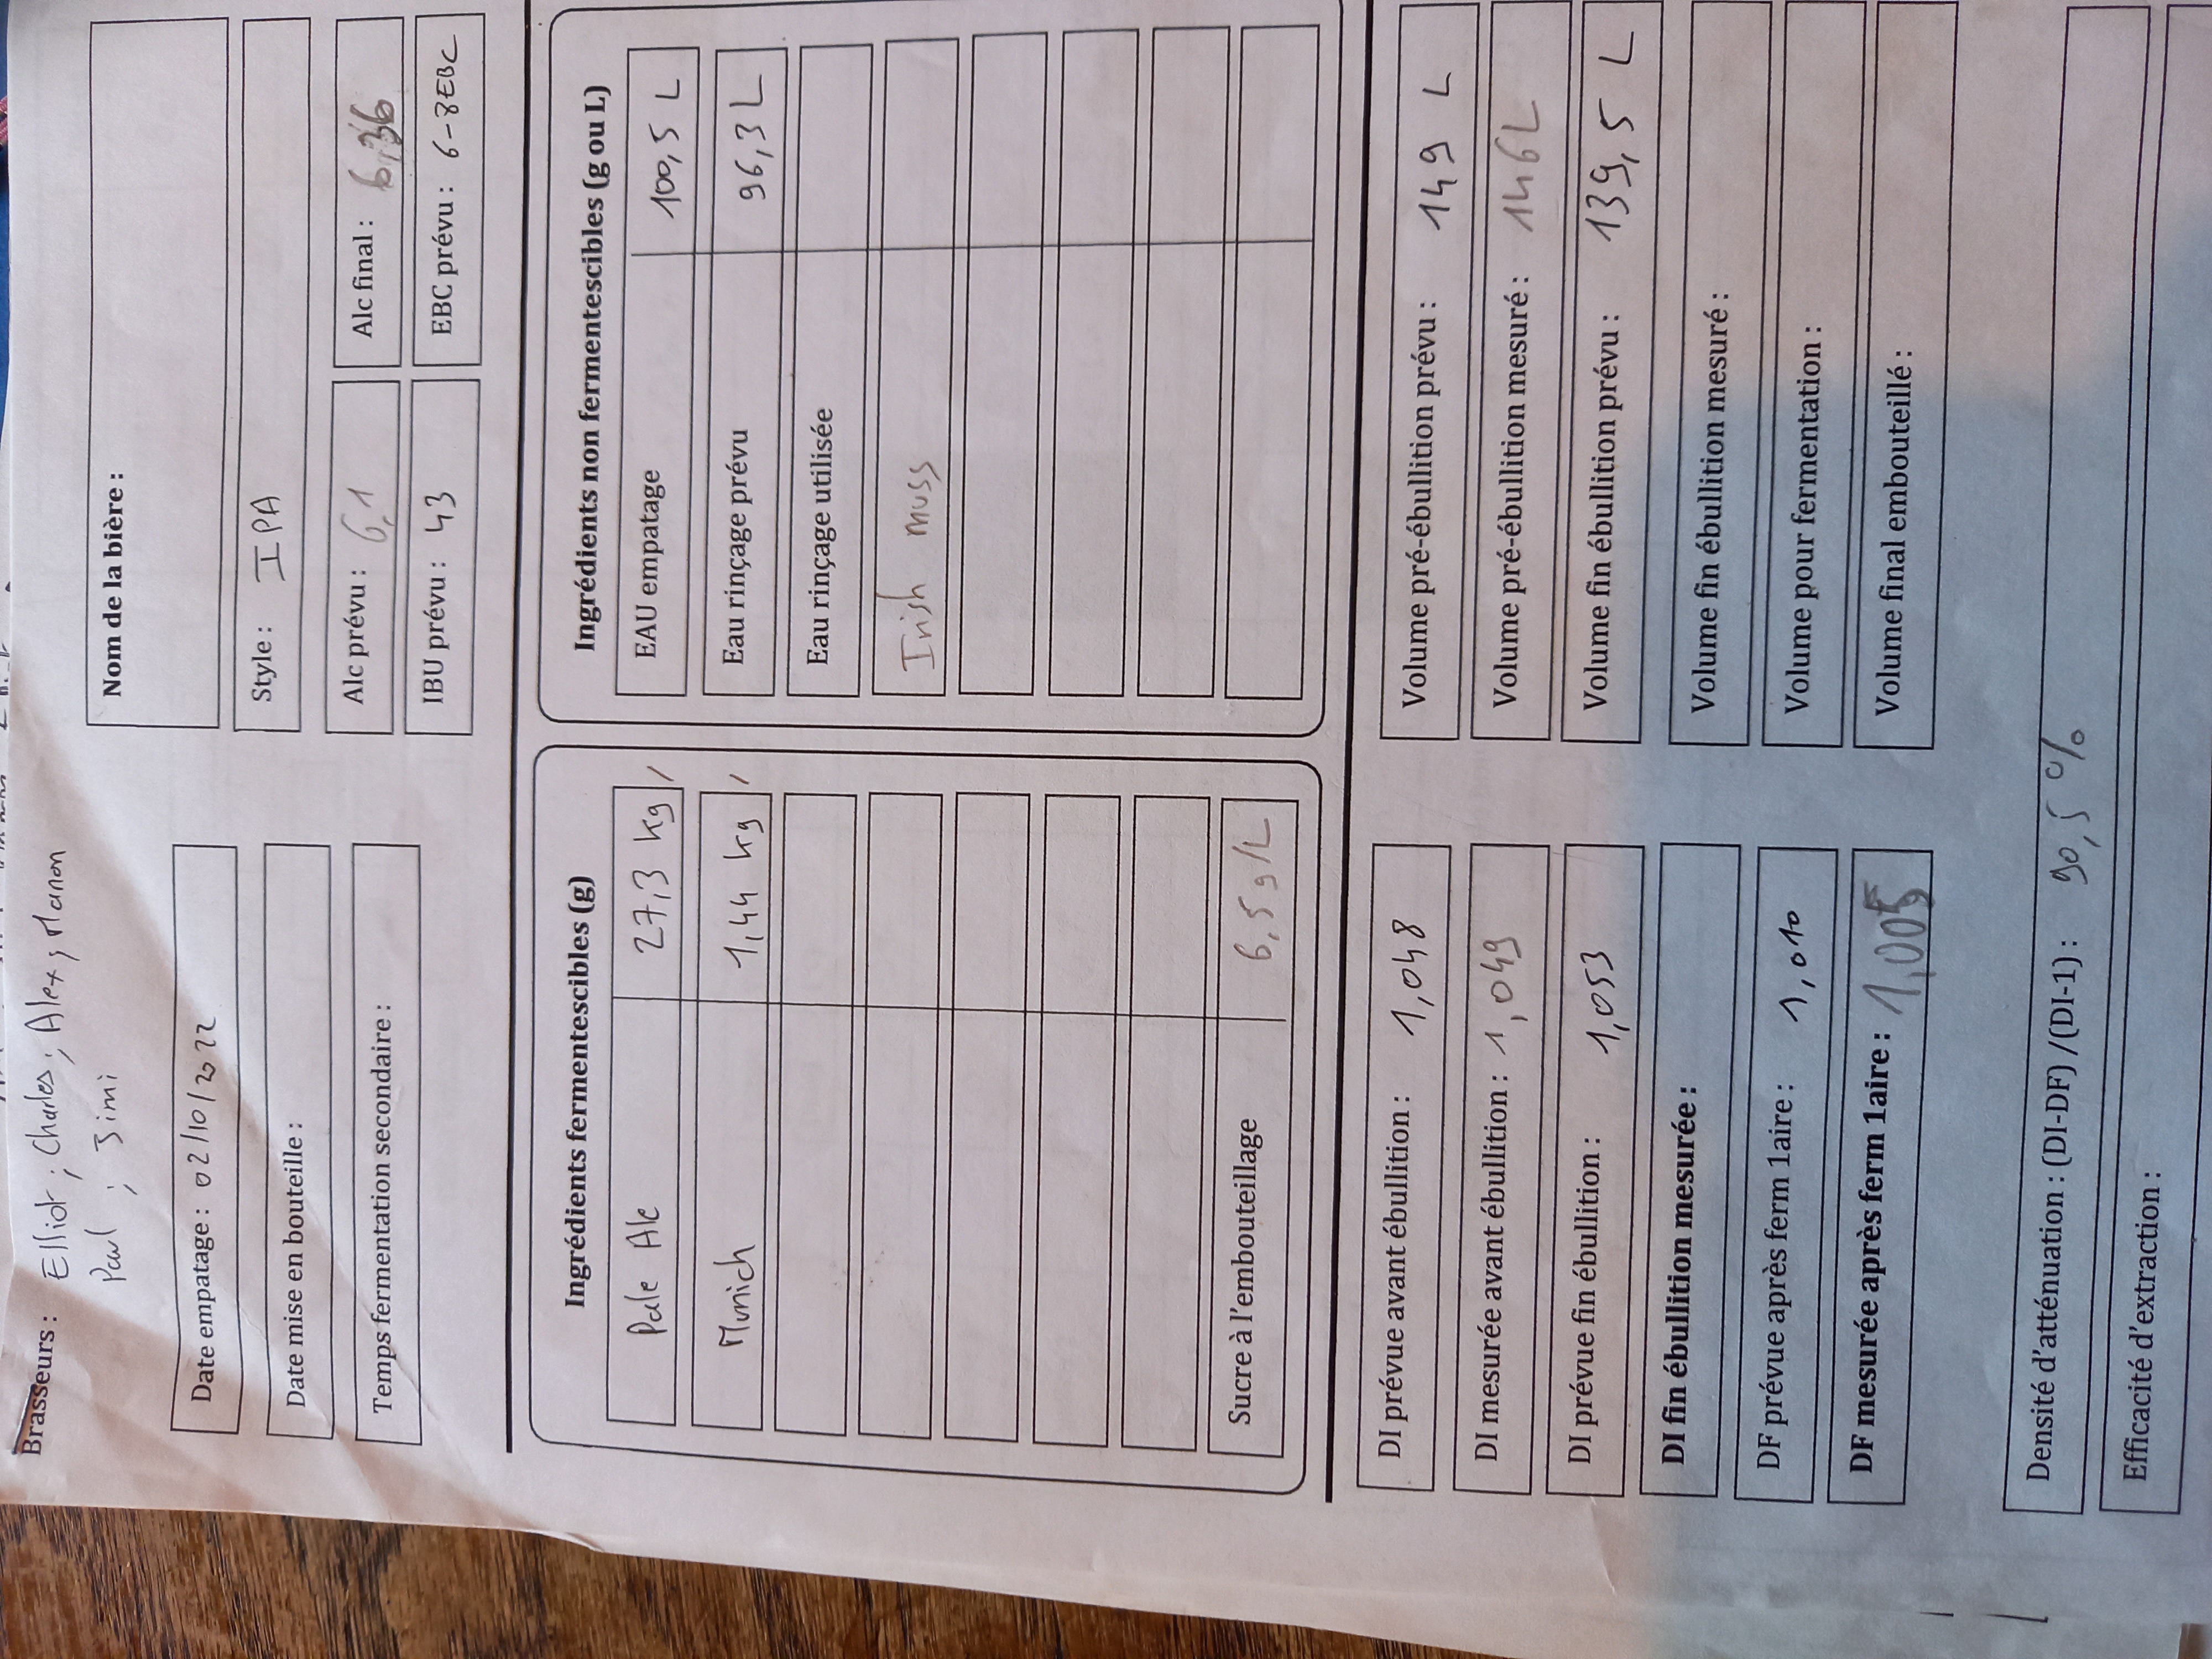 Brasseurs : Elliot ; Charles ; Alex ; Manon
Paul ; Jimi
Nom de la bière :
Date empatage : 02/10/2022
Style : IPA
Date mise en bouteille :
Alc prévu : 6,1
Alc final : 6,36
Temps fermentation secondaire :
IBU prévu : 43
EBC prévu : 6-8EBC
Ingrédients fermentescibles (g)
Pale Ale 27,3 kg
Munich 1,44 kg
Sucre à l'embouteillage 6,5 g/L
Ingrédients non fermentescibles (g ou L)
EAU empatage 100,5 L
Eau rinçage prévu 96,3 L
Eau rinçage utilisée
Irish muss
DI prévue avant ébullition : 1,048
DI mesurée avant ébullition : 1,049
DI prévue fin ébullition : 1,053
DI fin ébullition mesurée :
DF prévue après ferm 1aire : 1,010
DF mesurée après ferm 1aire : 1,005
Volume pré-ébullition prévu : 149 L
Volume pré-ébullition mesuré : 146L
Volume fin ébullition prévu : 139,5 L
Volume fin ébullition mesuré :
Volume pour fermentation :
Volume final embouteillé :
Densité d'atténuation : (DI-DF) /(DI-1) : 90,5 %
Efficacité d'extraction :